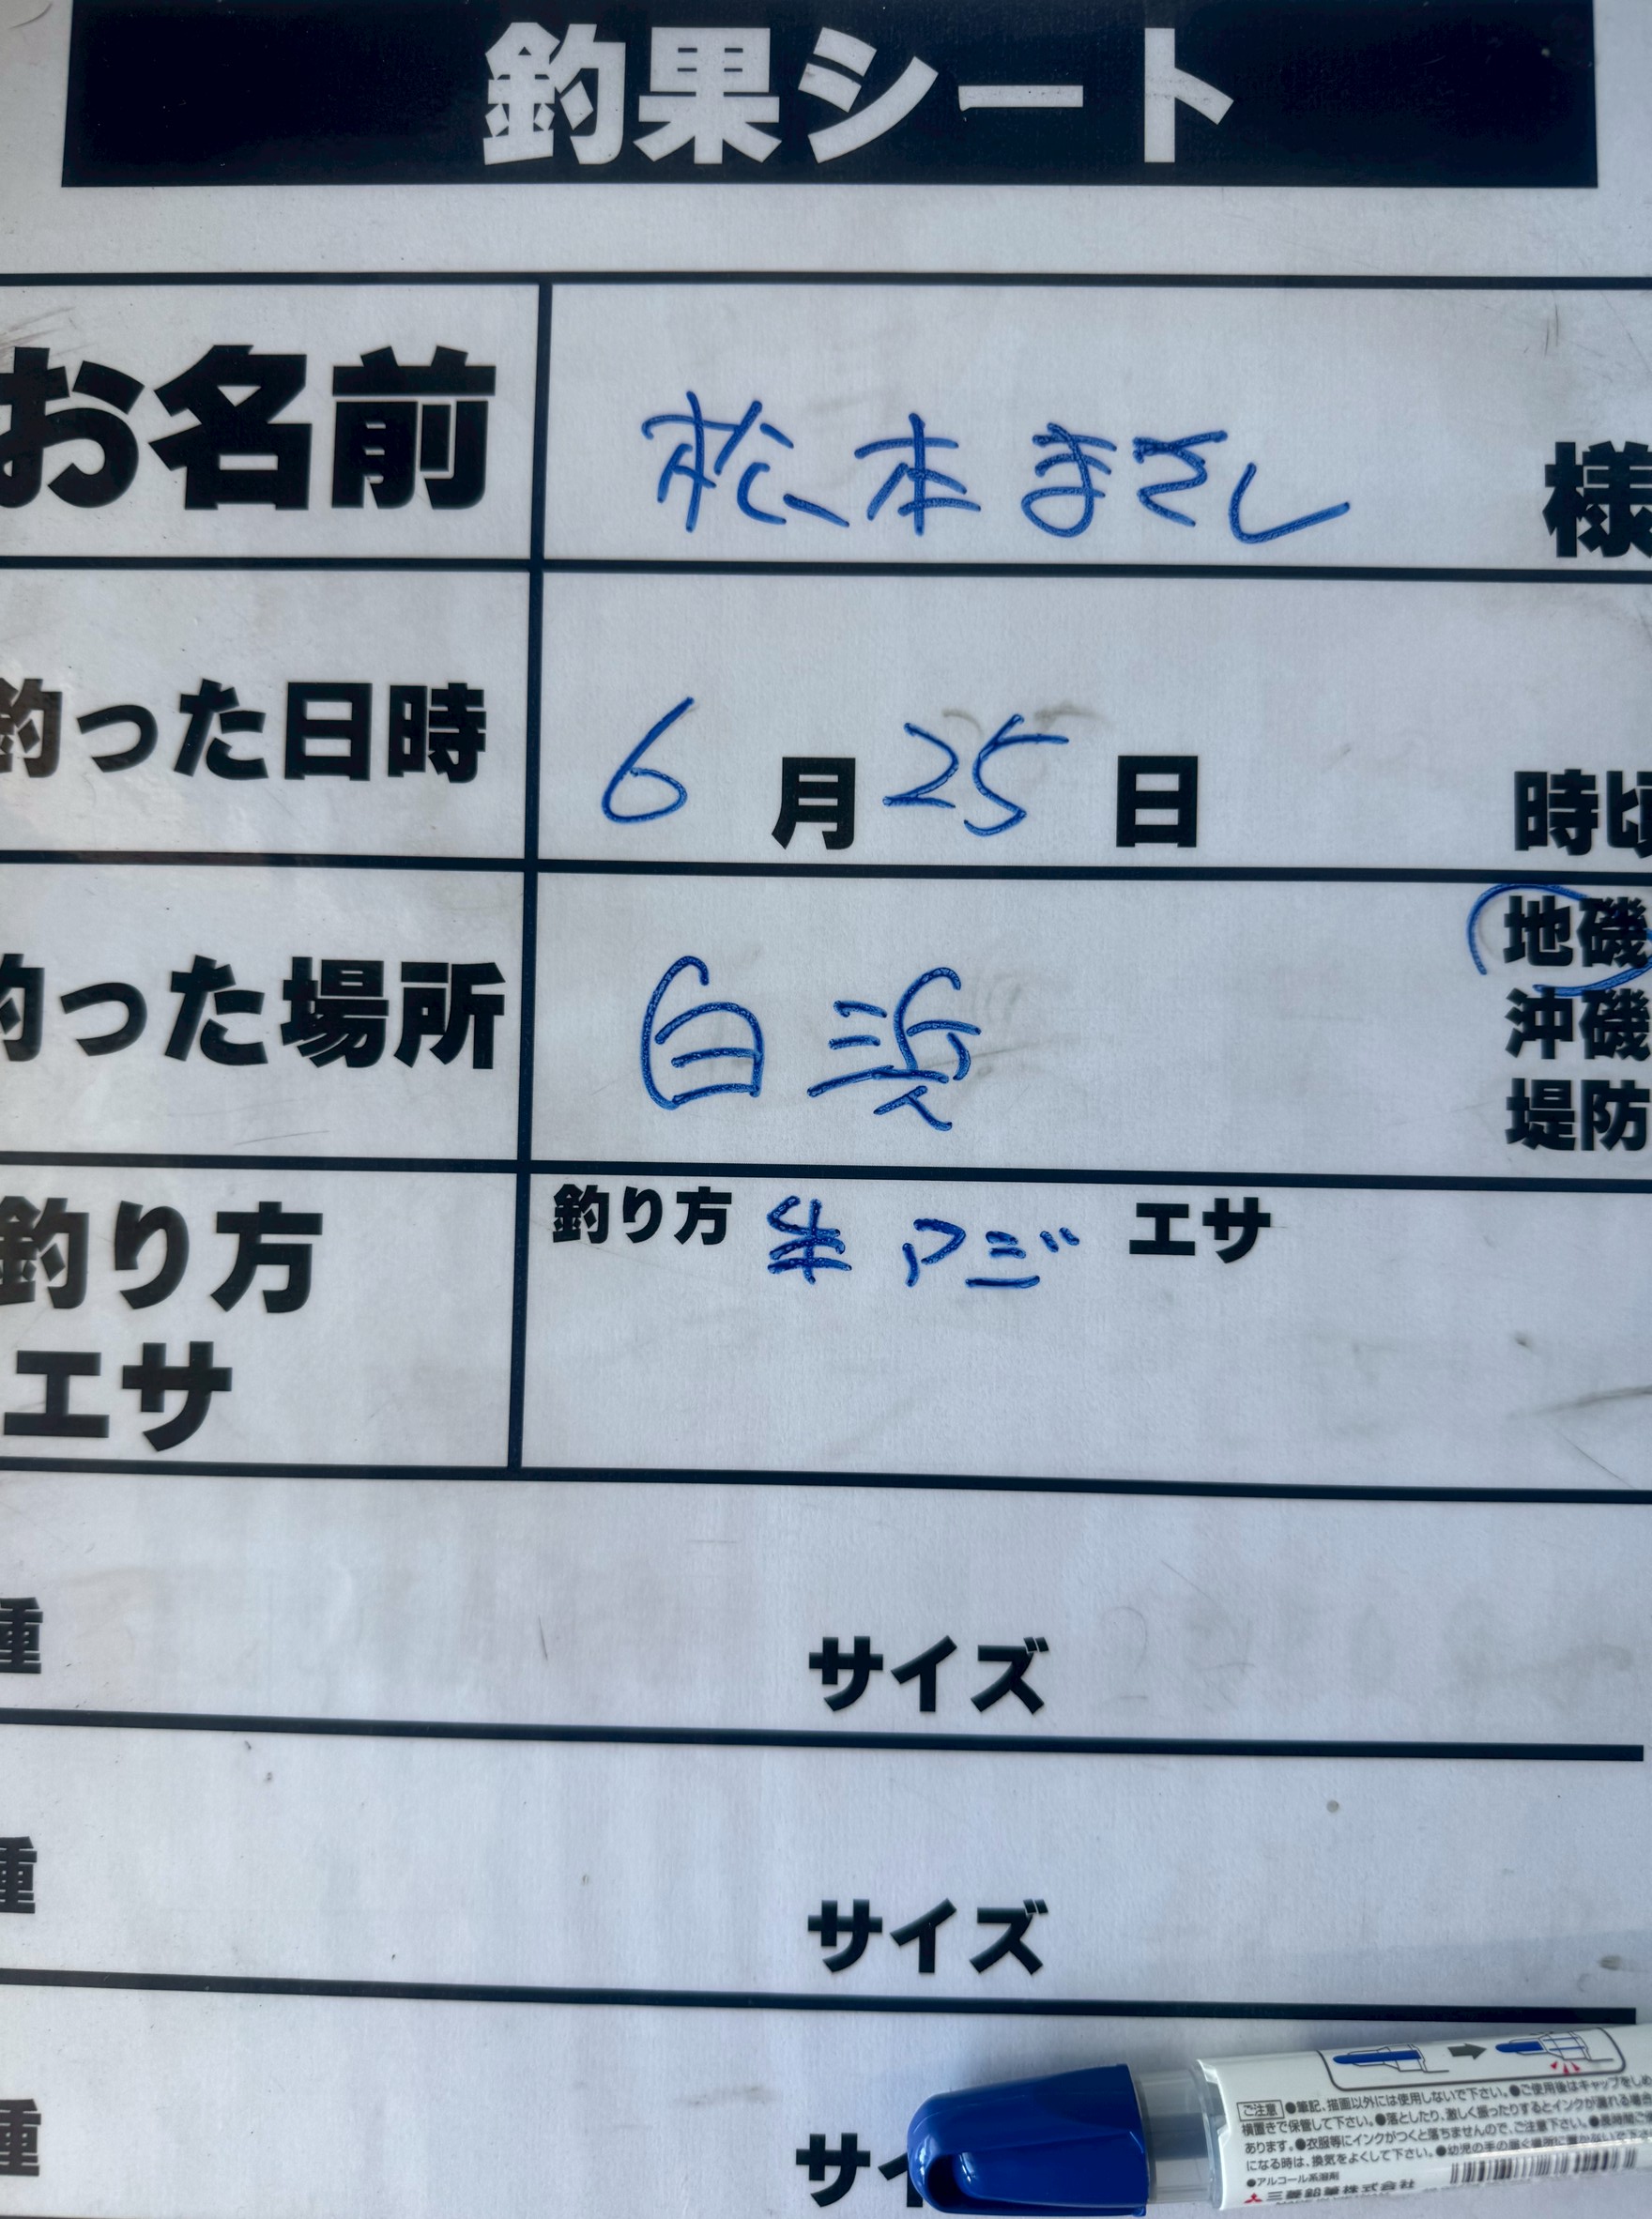 釣果シート
お名前 松本まさし 様
釣った日時 6月25日 時頃
釣った場所 白浜 地磯
沖磯
堤防
釣り方 釣り方 生アジ エサ
エサ
種 サイズ
種 サイズ
種 サイ
ご注意 ●筆記、描画以外には使用しないで下さい。●ご使用後はキャップをしめ
横置きで保管して下さい。●落としたり、激しく振ったりするとインクが漏れる場合
あります。●衣服等にインクがつくと落ちませんので、ご注意下さい。●長時間ご
になる時は、換気をよくして下さい。●幼児の手の届く場所に置かないで下さ
●アルコール系溶剤
三菱鉛筆株式会社